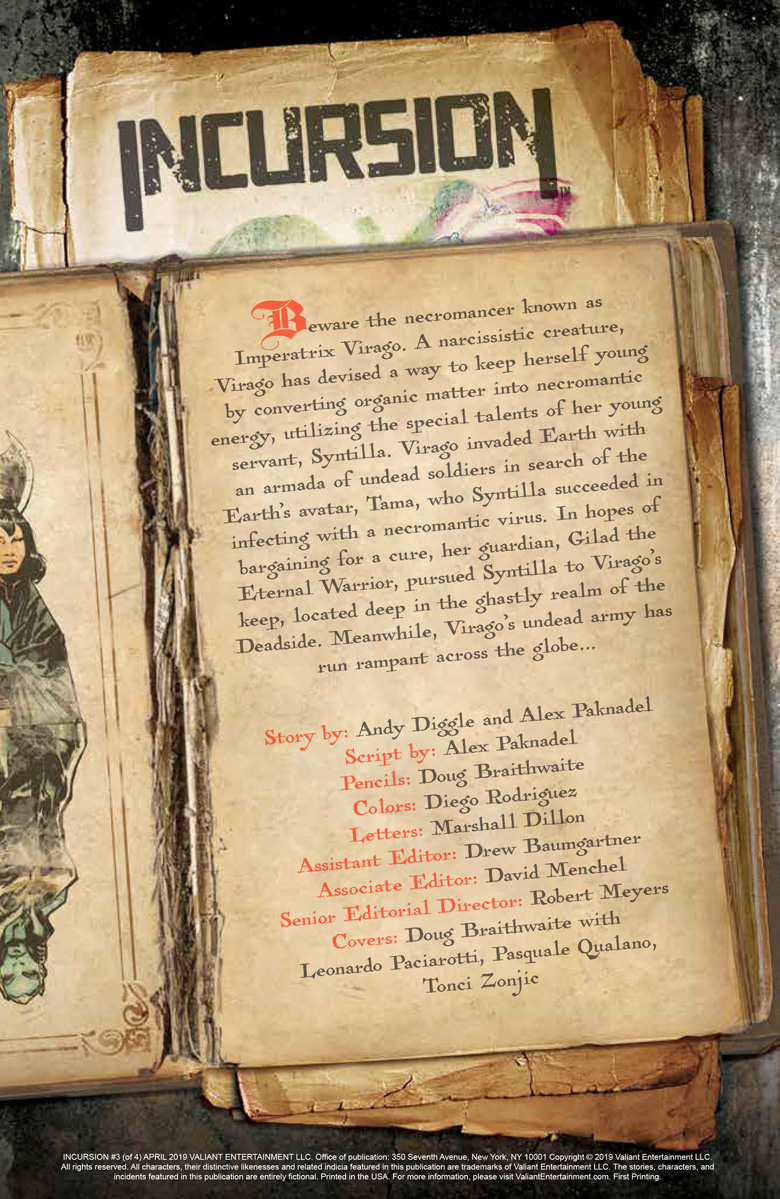 INCURSION™
Beware the necromancer known as
Imperatrix Virago. A narcissistic creature,
Virago has devised a way to keep herself young
by converting organic matter into necromantic
energy, utilizing the special talents of her young
servant, Syntilla. Virago invaded Earth with
an armada of undead soldiers in search of the
Earth's avatar, Tama, who Syntilla succeeded in
infecting with a necromantic virus. In hopes of
bargaining for a cure, her guardian, Gilad the
Eternal Warrior, pursued Syntilla to Virago's
keep, located deep in the ghastly realm of the
Deadside. Meanwhile, Virago's undead army has
run rampant across the globe...
Story by: Andy Diggle and Alex Paknadel
Script by: Alex Paknadel
Pencils: Doug Braithwaite
Colors: Diego Rodriguez
Letters: Marshall Dillon
Assistant Editor: Drew Baumgartner
Associate Editor: David Menchel
Senior Editorial Director: Robert Meyers
Covers: Doug Braithwaite with
Leonardo Paciarotti, Pasquale Qualano,
Tonci Zonjic
INCURSION #3 (of 4) APRIL 2019 VALIANT ENTERTAINMENT LLC. Office of publication: 350 Seventh Avenue, New York, NY 10001 Copyright © 2019 Valiant Entertainment LLC.
All rights reserved. All characters, their distinctive likenesses and related indicia featured in this publication are trademarks of Valiant Entertainment LLC. The stories, characters, and
incidents featured in this publication are entirely fictional. Printed in the USA. For more information, please visit ValiantEntertainment.com. First Printing.